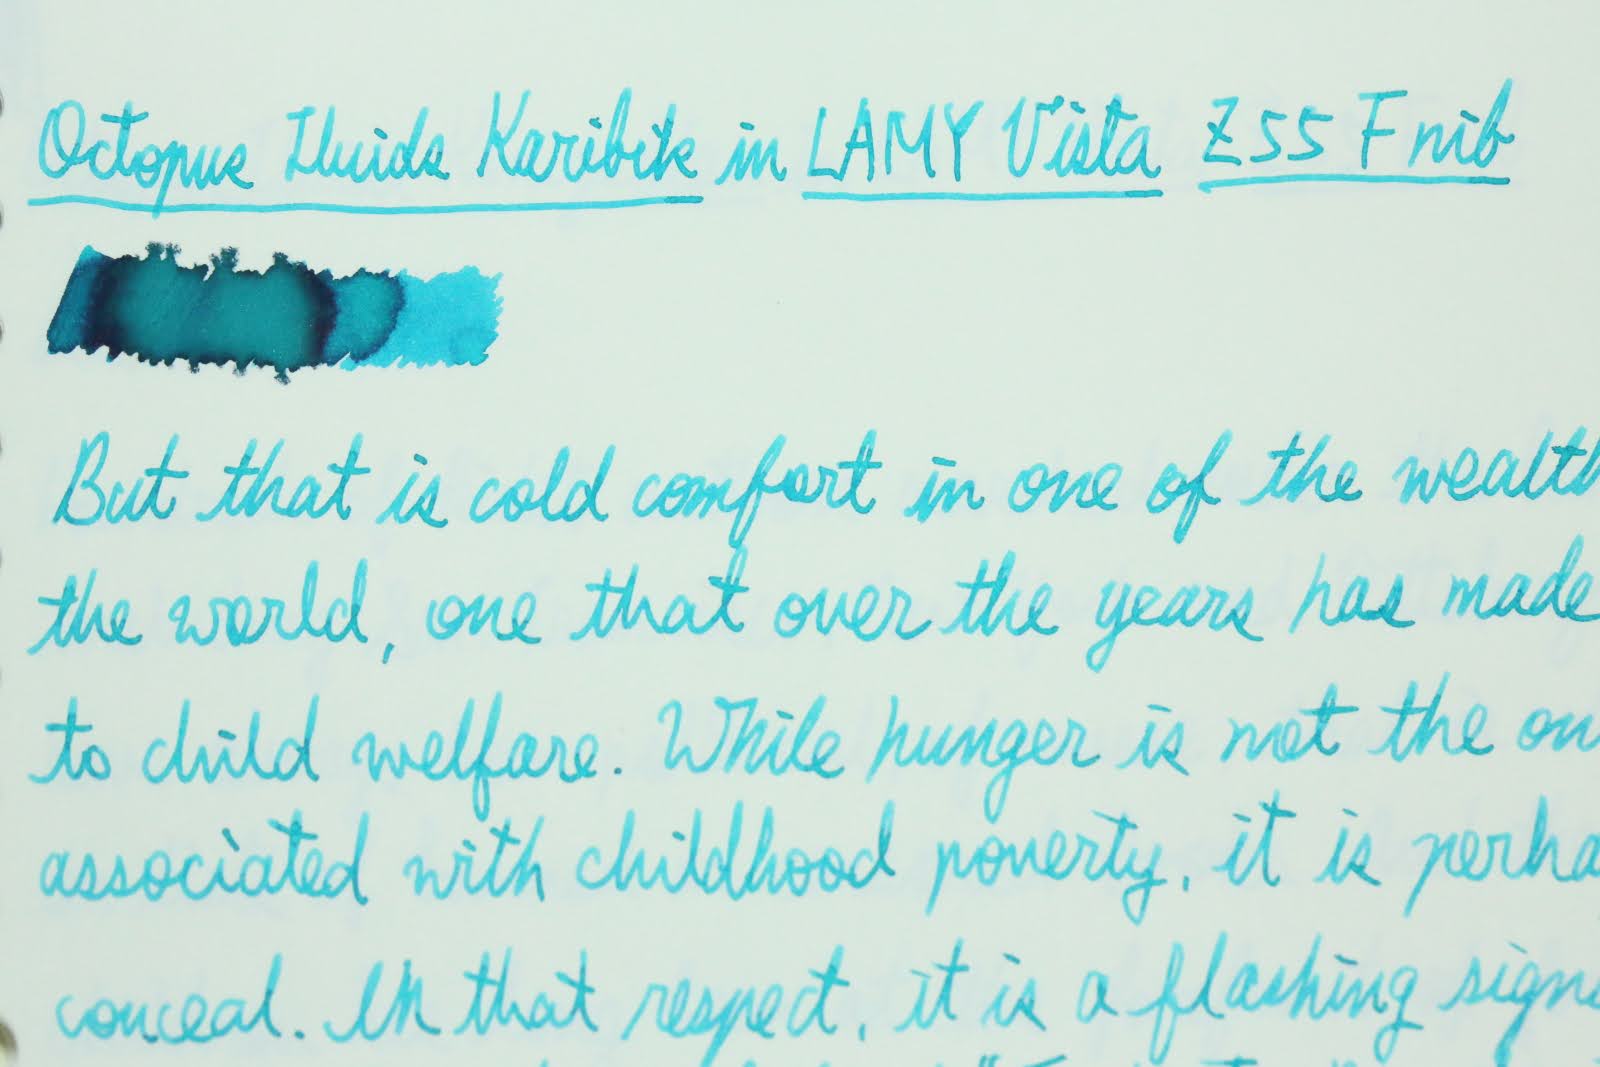 Octopus Fluids Karibik in LAMY Vista Z55 F nib
But that is cold comfort in one of the wealth
the world, one that over the years has made
to child welfare. While hunger is not the on
associated with childhood poverty, it is perha
conceal. In that respect, it is a flashing sign